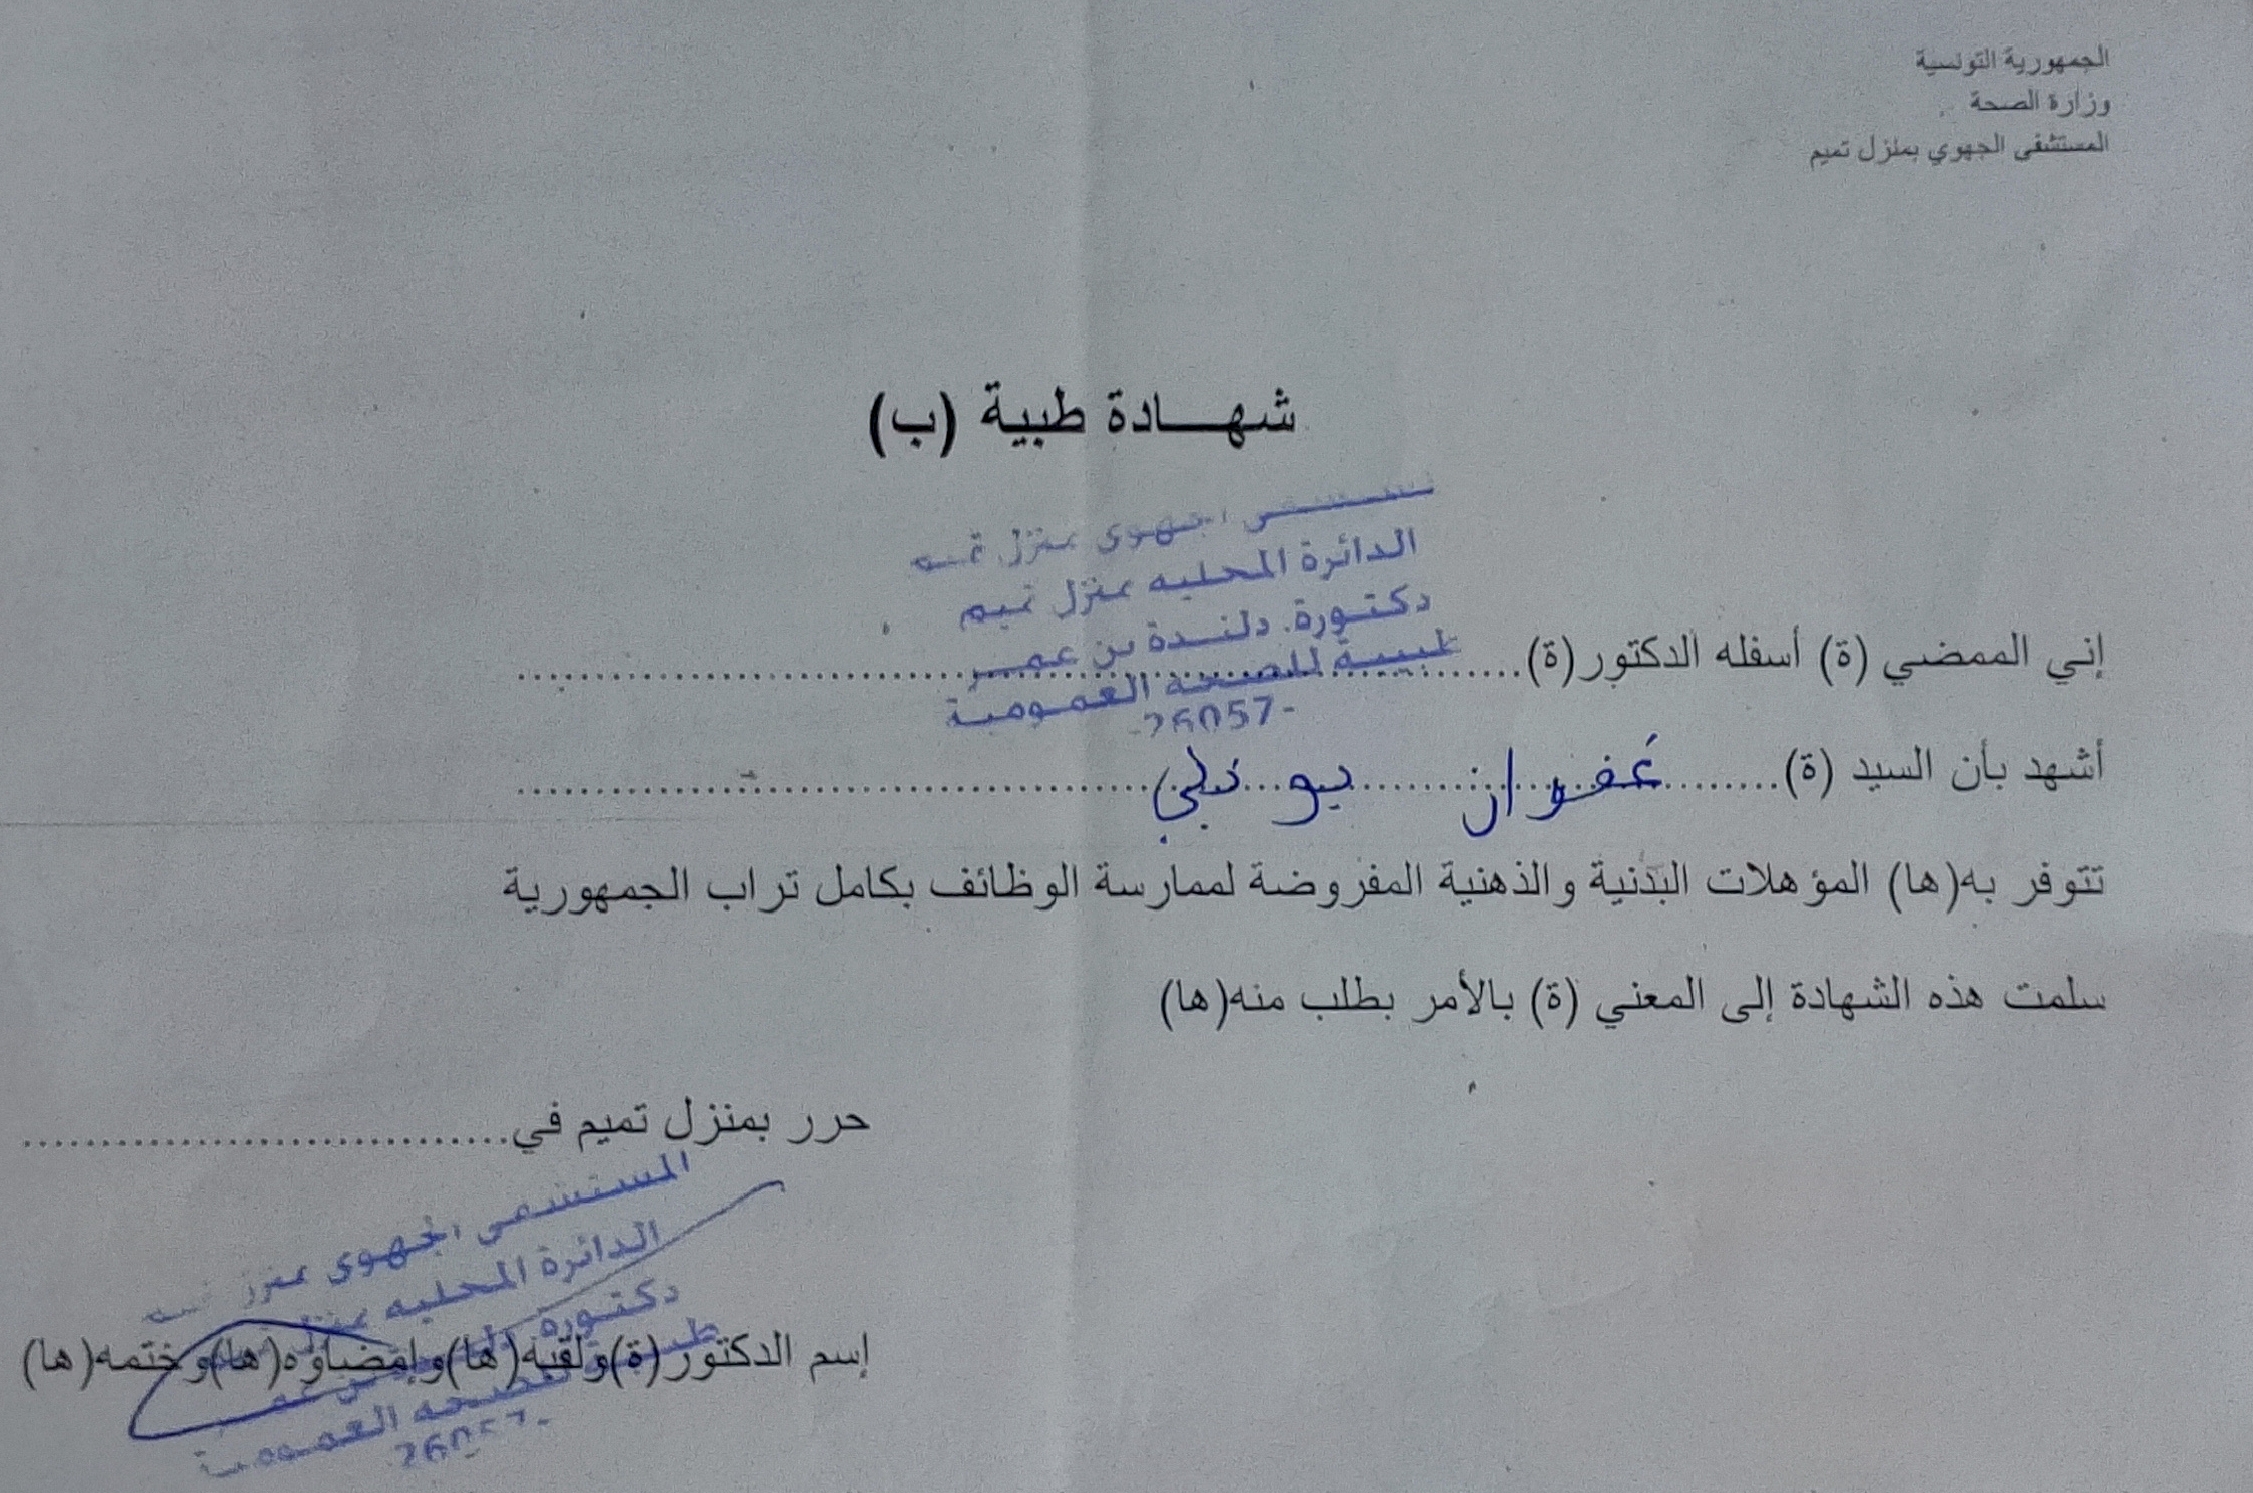 الجمهورية التونسية
وزارة الصحة
المستشفى الجهوي بمنزل تميم
شهـــادة طبية (ب)
الجهوي بمنزل
الدائرة المحلية بمنزل تميم
دكتورة. دلندة بن عمر
طبيبة للصحة العمومية
-26057-
إني الممضي (ة) أسفله الدكتور(ة)
أشهد بأن السيد (ة) غفران
تتوفر به(ها) المؤهلات البدنية والذهنية المفروضة لممارسة الوظائف بكامل تراب الجمهورية
سلمت هذه الشهادة إلى المعني (ة) بالأمر بطلب منه(ها)
حرر بمنزل تميم في
المستشفى الجهوي بمنزل
الدائرة المحلية بمنزل
دكتورة
إسم الدكتور(ة)ولقبه(ها)وإمضاؤه(ها)وختمه(ها)
للصحة العمومية